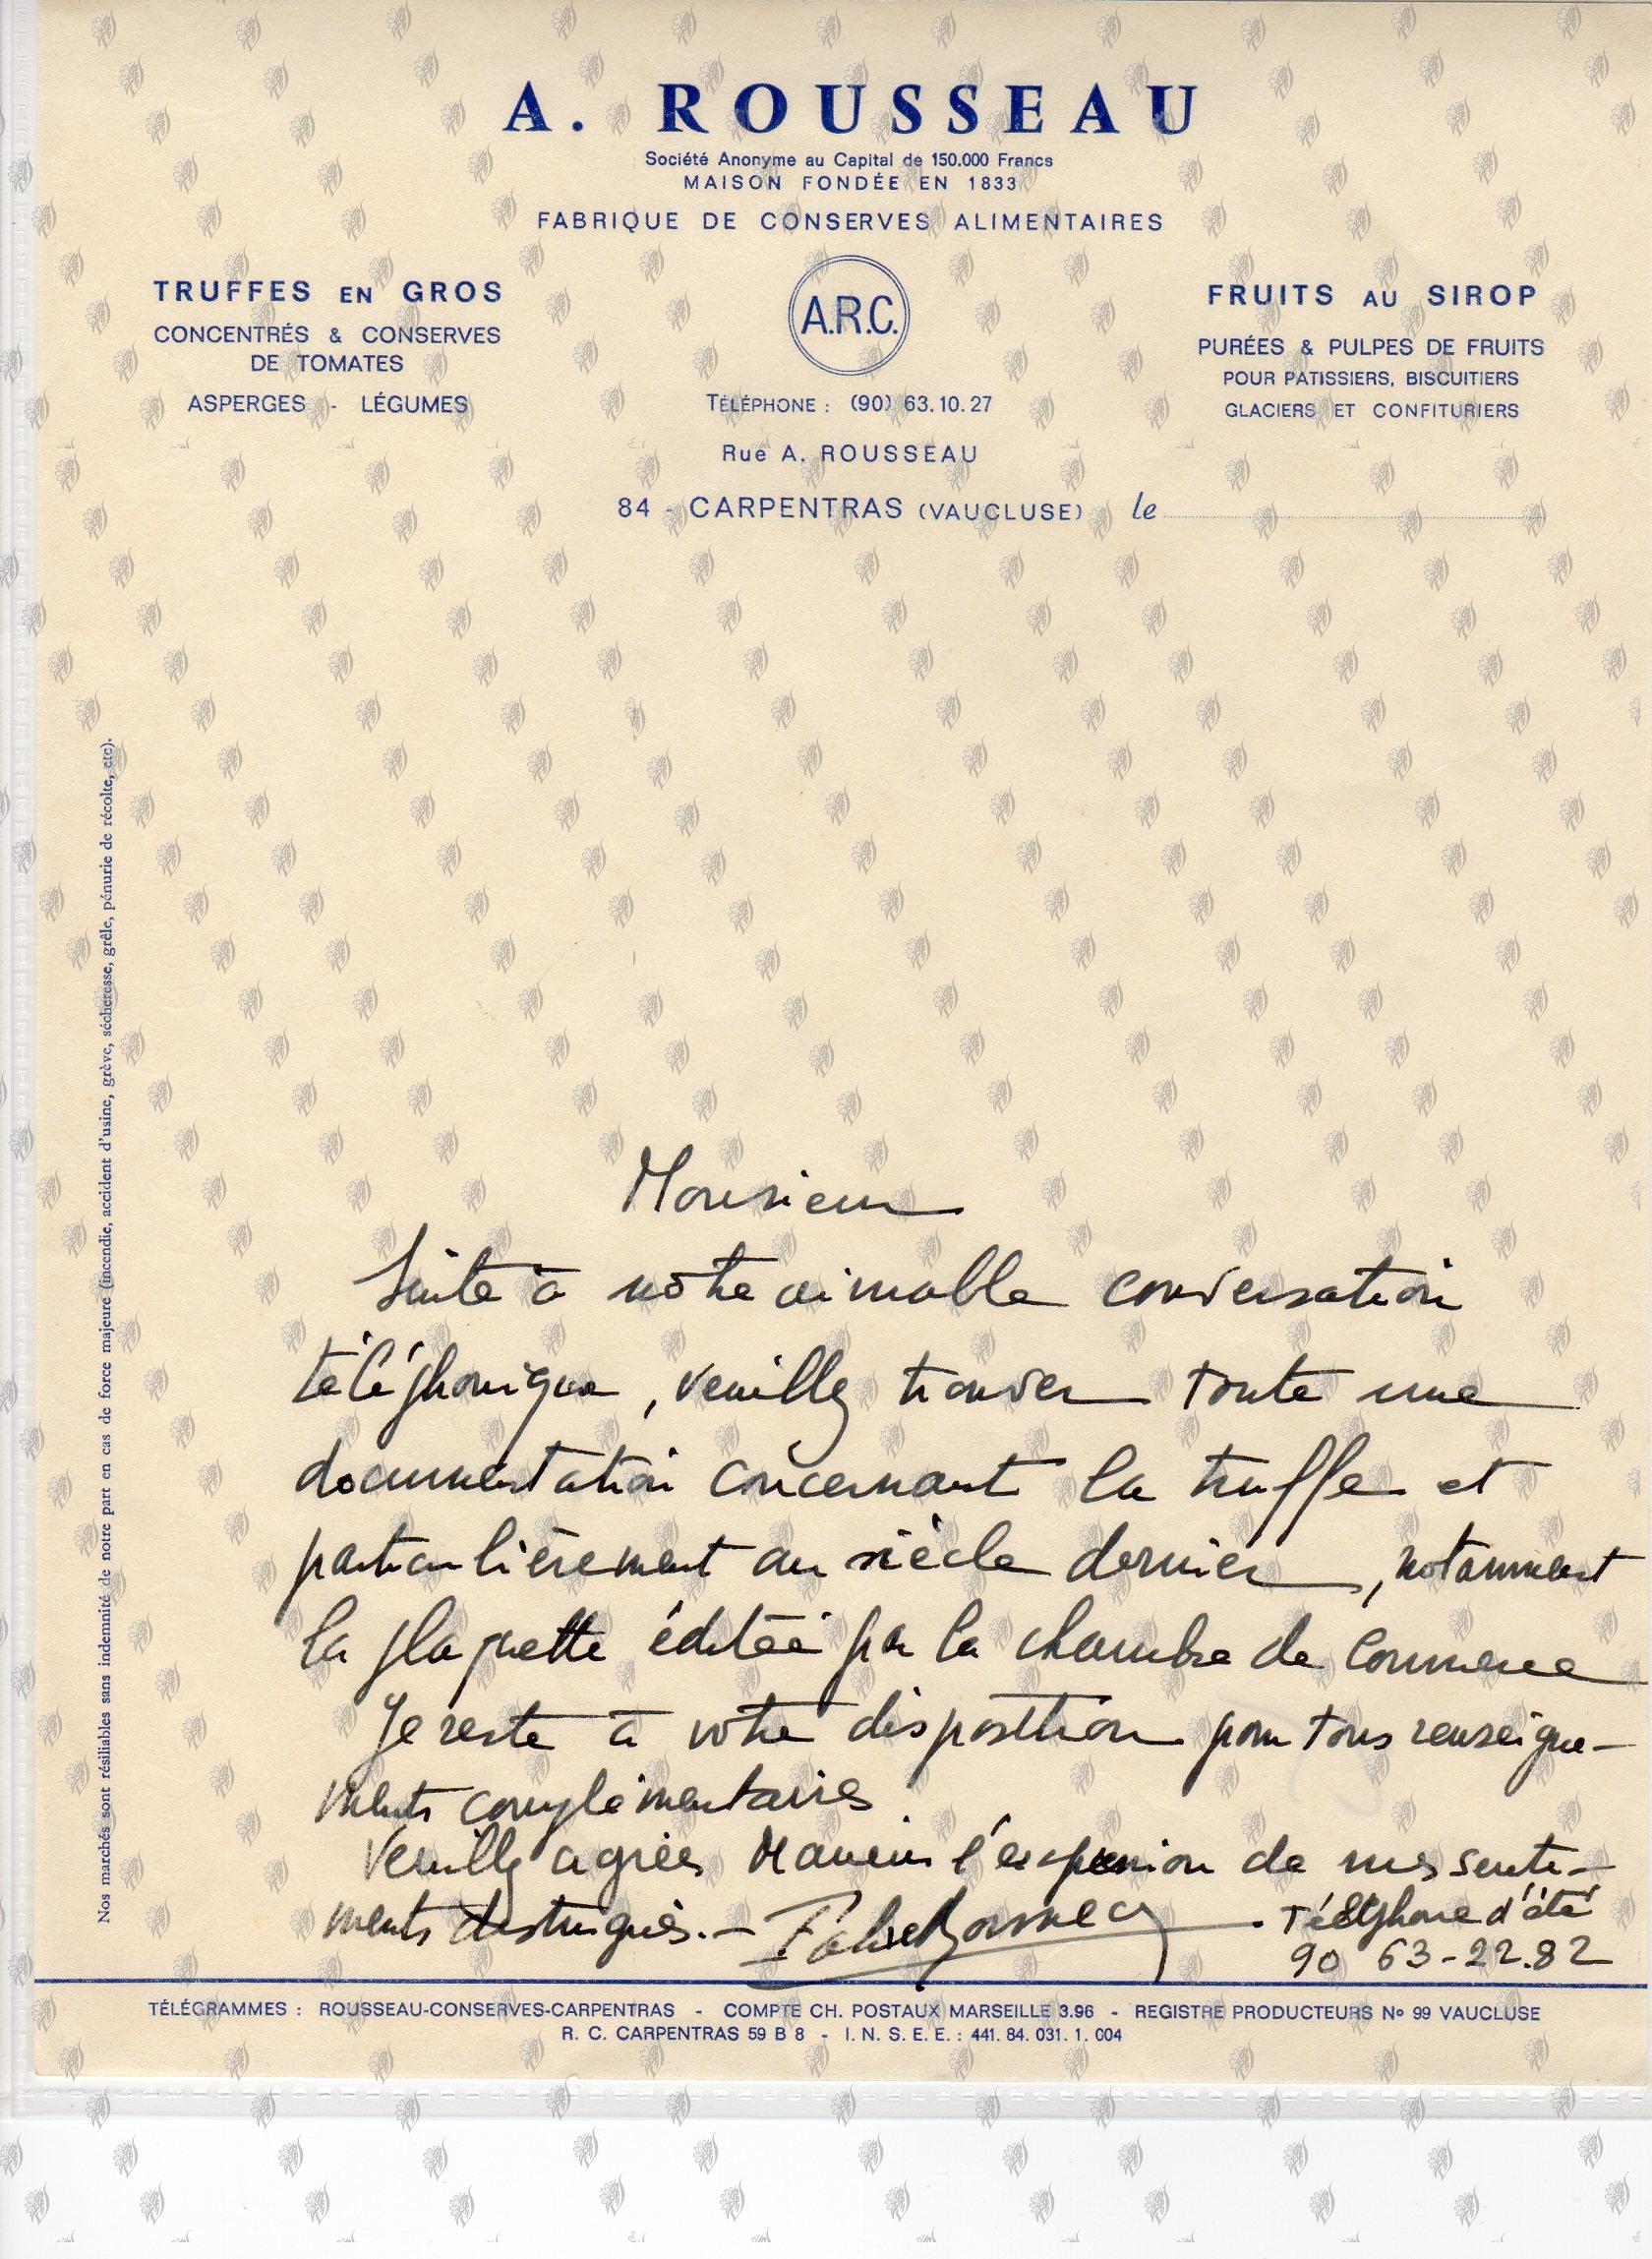 A. ROUSSEAU
Société Anonyme au Capital de 150.000 Francs
MAISON FONDÉE EN 1833
FABRIQUE DE CONSERVES ALIMENTAIRES
TRUFFES EN GROS
CONCENTRÉS & CONSERVES
DE TOMATES
ASPERGES - LÉGUMES
A.R.C.
TÉLÉPHONE : (90) 63.10.27
Rue A. ROUSSEAU
84 - CARPENTRAS (VAUCLUSE) le
FRUITS AU SIROP
PURÉES & PULPES DE FRUITS
POUR PATISSIERS, BISCUITIERS
GLACIERS ET CONFITURIERS
Nos marchés sont résiliables sans indemnité de notre part en cas de force majeure (incendie, accident d'usine, grève, sécheresse, grêle, pénurie de récolte, etc).
Monsieur
Suite à notre aimable conversation
téléphonique, veuillez trouver toute une
documentation concernant la truffe et
particulièrement au siècle dernier, notamment
la plaquette éditée par la chambre de Commerce
Je reste à votre disposition pour tous renseigne-
ments complémentaires.
Veuillez agréer Monsieur l'expression de mes senti-
ments distingués. -
Téléphone d'été
90 63-22.82
TÉLÉGRAMMES : ROUSSEAU-CONSERVES-CARPENTRAS - COMPTE CH. POSTAUX MARSEILLE 3.96 - REGISTRE PRODUCTEURS No 99 VAUCLUSE
R. C. CARPENTRAS 59 B 8 - I. N. S. E. E. : 441. 84. 031. 1. 004